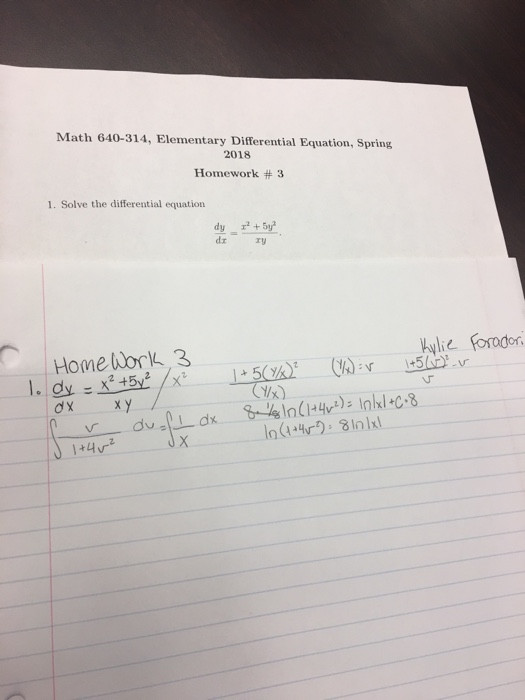 Math 640-314, Elementary Differential Equation, Spring
2018
Homework # 3
1. Solve the differential equation
dy/dx = (x² + 5y²)/(xy).
Kylie Forador
HomeWork 3
1. dy/dx = (x² + 5y²)/(xy) / x²   (1 + 5(y/x)²)/(y/x)   (y/x) = v   (1+5(v)²)/v - v
∫ v/(1+4v²) dv = ∫ 1/x dx   8 · 1/8 ln(1+4v²) = ln|x| + C · 8
ln(1+4v²) = 8 ln|x|